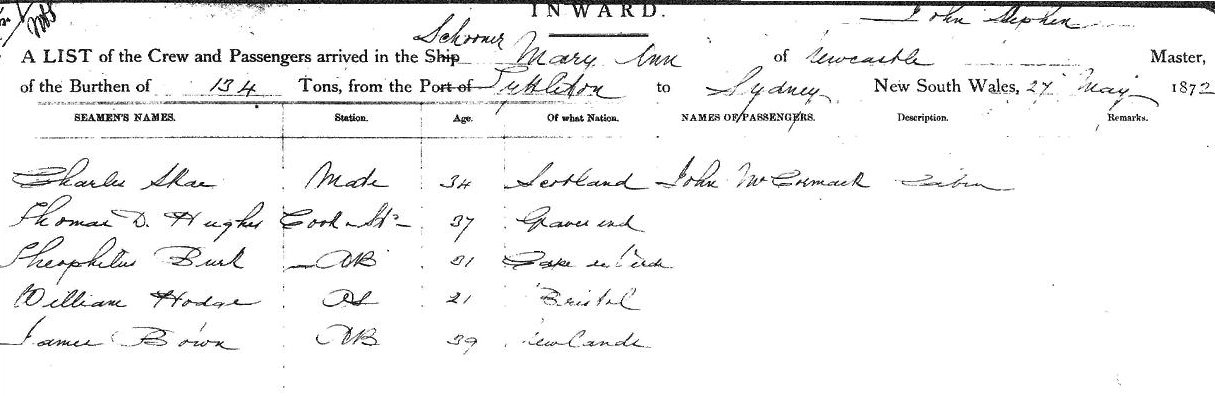 INWARD.
John Stephen
A LIST of the Crew and Passengers arrived in the Ship Schooner Mary Ann of Newcastle Master,
of the Burthen of 134 Tons, from the Port of Lyttleton to Sydney New South Wales, 27 May 1872
SEAMEN'S NAMES. Station. Age. Of what Nation. NAMES OF PASSENGERS. Description. Remarks.
Charles Skae Mate 34 Scotland John McCormack Cabin
Thomas D. Hughes Cook & St 37 Gravesend
Theophilus Burk AB 31
William Hodge OS 21 Bristol
James Bown AB 39